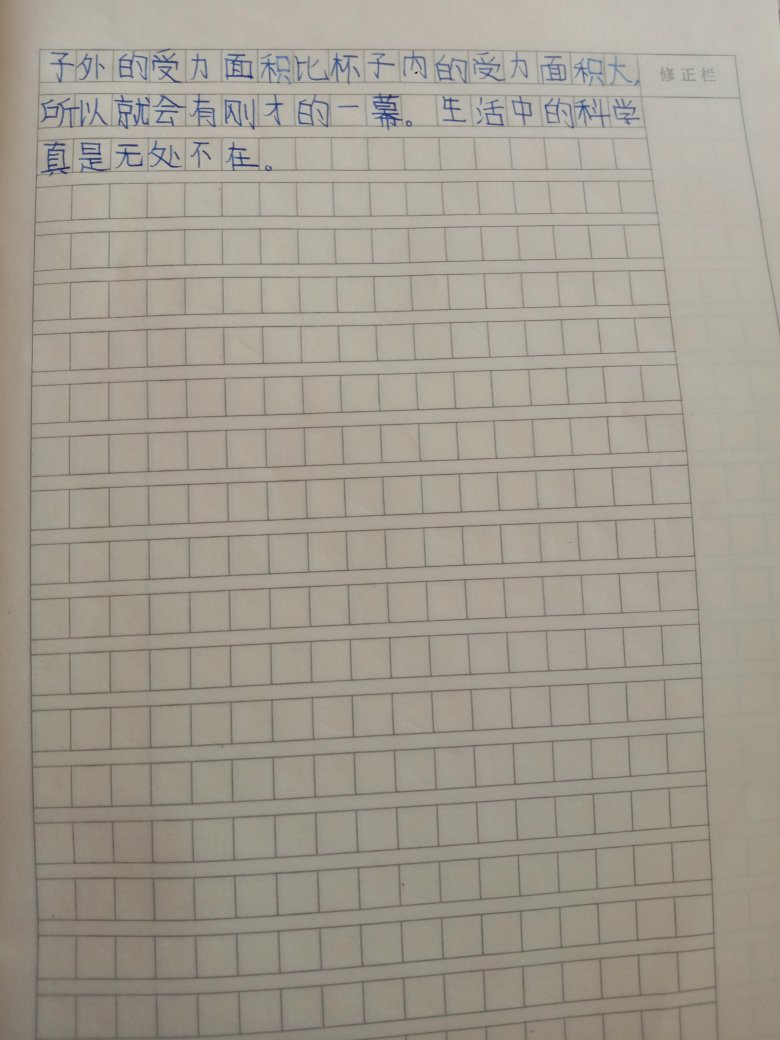 子外的受力面积比杯子内的受力面积大,
修正栏
所以就会有刚才的一幕。生活中的科学
真是无处不在。